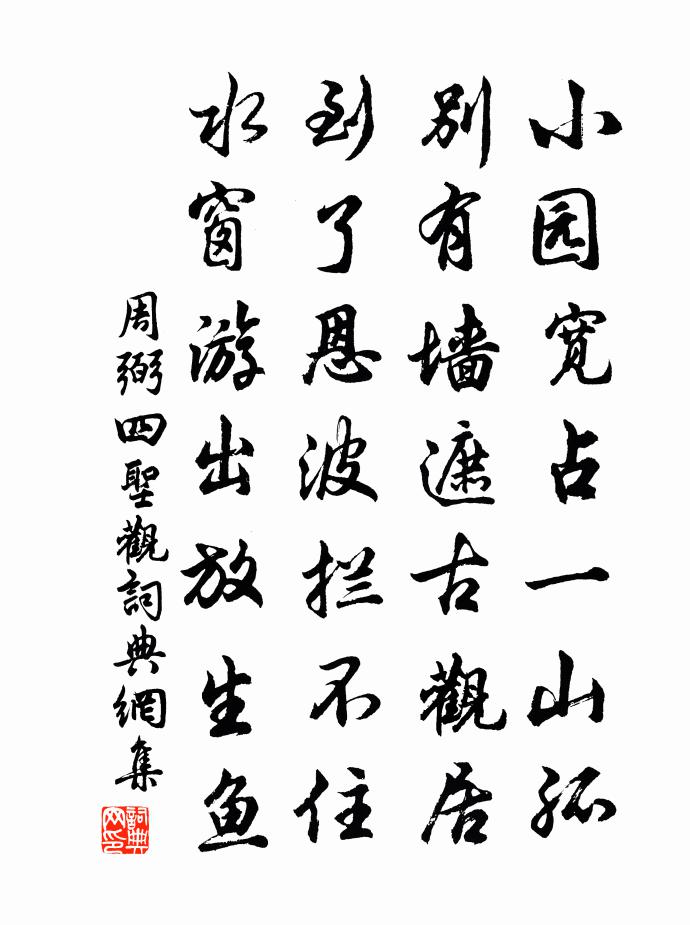 小园宽占一山孤
别有墙遮古觀居
到了恩波拦不住
水窗游出放生鱼
周弼四聖觀詞典網集
詞典
网印